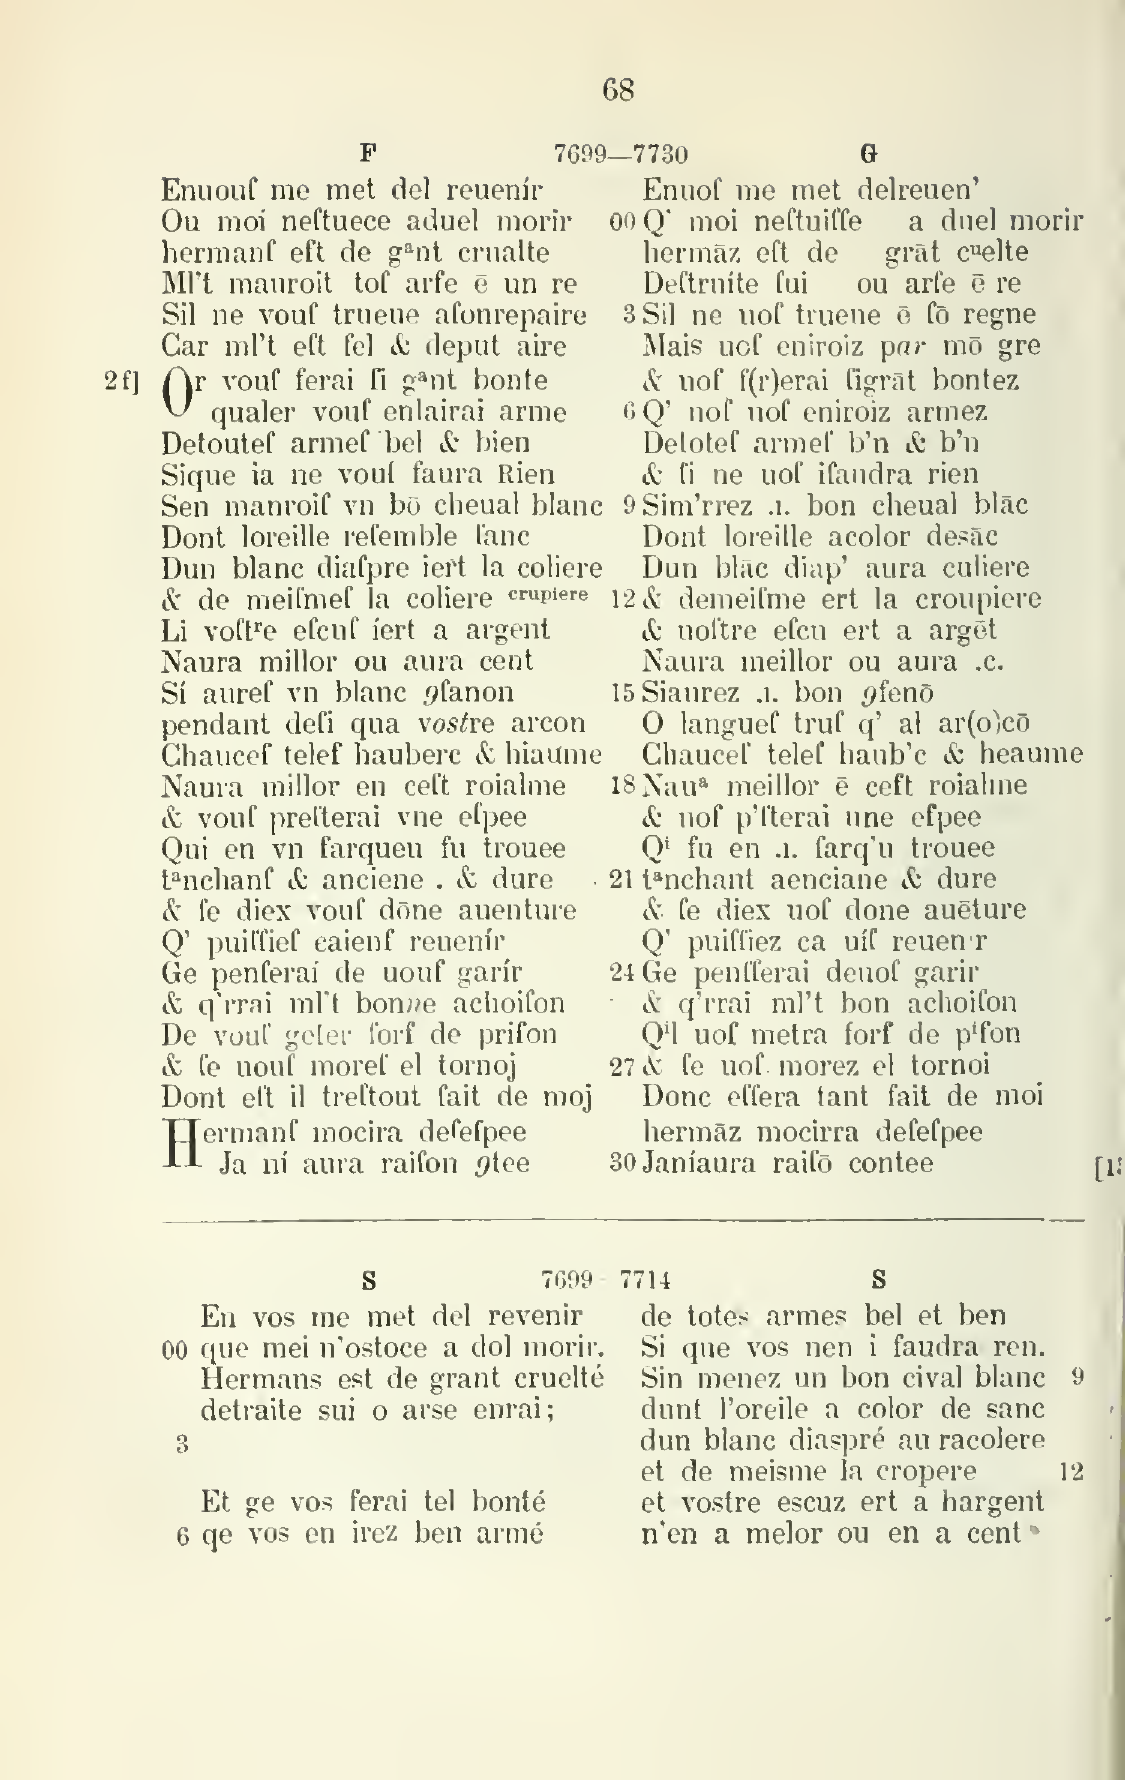 68
F 7699—7730 G
Enuouſ me met del reuenír
Ou moi neſtuece aduel morir
hermanſ eſt de gᵃnt crualte
Ml't mauroit toſ arſe ē un re
Sil ne vouſ trueue aſonrepaire
Car ml't eſt ſel & deput aire
2f] Or vouſ ferai ſi gᵃnt bonte
qualer vouſ enlairai arme
Detouteſ armeſ bel & bien
Sique ia ne vouſ faura Rien
Sen manroiſ vn bō cheual blanc
Dont loreille reſemble ſanc
Dun blanc diaſpre iert la coliere
& de meiſmeſ la coliere crupiere
Li voſtʳe eſcuſ íert a argent
Naura millor ou aura cent
Sí aureſ vn blanc ꝯfanon
pendant deſi qua vostre arcon
Chauceſ teleſ hauberc & hiaume
Naura millor en ceſt roialme
& vouſ preſterai vne eſpee
Qui en vn ſarqueu fu trouee
tᵃnchanſ & anciene . & dure
& ſe diex vouſ dōne auenture
Q' puiſſieſ caienſ reuenír
Ge penſeraí de uouſ garír
& q'rrai ml't bonne achoiſon
De vouſ geter forſ de priſon
& ſe uouſ moreſ el tornoj
Dont eſt il treſtout fait de moj
Hermanſ mocira deſeſpee
Ja ní aura raiſon ꝯtee
Enuoſ me met delreuen'
00 Q' moi neſtuiſſe a duel morir
hermāz eſt de grāt cᵘelte
Deſtruite ſui ou arſe ē re
3 Sil ne uoſ trueue ō ſō regne
Mais uoſ eniroiz par mō gre
& uoſ f(r)erai ſigrāt bontez
6 Q' uoſ uoſ eniroiz armez
Detoteſ armeſ b'n & b'n
& ſi ne uoſ iſaudra rien
9 Sim'rrez .ı. bon cheual blāc
Dont loreille acolor desāc
Dun blāc diap' aura culiere
12 & demeiſme ert la croupiere
& uoſtre eſcu ert a argēt
Naura meillor ou aura .c.
15 Siaurez .ı. bon ꝯfenō
O langueſ truſ q' al ar(o)cō
Chauceſ teleſ haub'c & heaume
18 Nauᵃ meillor ē ceſt roialme
& uoſ p'ſterai une eſpee
Qⁱ fu en .ı. ſarq'u trouee
21 tᵃnchant aenciane & dure
& ſe diex uoſ done auēture
Q' puiſſiez ca uíſ reuenır
24 Ge penſſerai deuoſ garir
& q'rrai ml't bon achoiſon
Qⁱl uoſ metra forſ de pⁱſon
27 & ſe uoſ morez el tornoi
Donc eſſera tant fait de moi
hermāz mocirra deſeſpee
30 Janíaura raiſō contee
S 7699 7714 S
En vos me met del revenir
00 que mei n'ostoce a dol morir.
Hermans est de grant cruelté
detraite sui o arse enrai;
3
Et ge vos ferai tel bonté
6 qe vos en irez ben armé
de totes armes bel et ben
Si que vos nen i faudra ren.
Sin menez un bon cival blanc 9
dunt l'oreile a color de sanc
dun blanc diaspré au racolere
et de meisme la cropere 12
et vostre escuz ert a hargent
n'en a melor ou en a cent